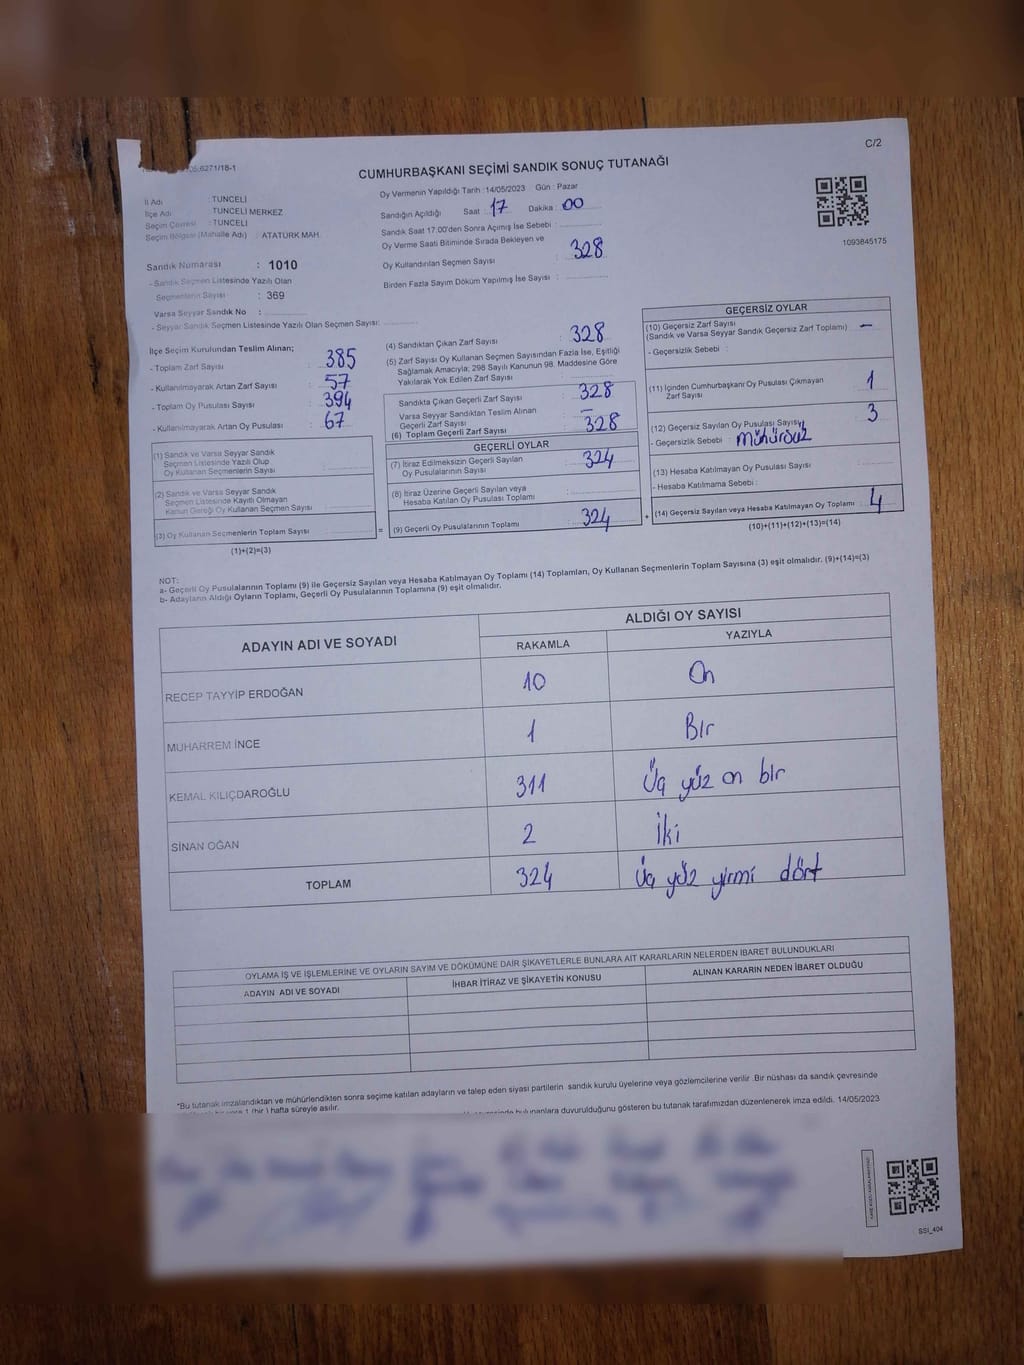 C/2
CUMHURBAŞKANI SEÇİMİ SANDIK SONUÇ TUTANAĞI
İl Adı : TUNCELİ
İlçe Adı : TUNCELİ MERKEZ
Seçim Çevresi : TUNCELİ
Seçim Bölgesi (Mahalle Adı) : ATATÜRK MAH.
Sandık Numarası : 1010
- Sandık Seçmen Listesinde Yazılı Olan
Seçmenlerin Sayısı : 369
Varsa Seyyar Sandık No :
- Seyyar Sandık Seçmen Listesinde Yazılı Olan Seçmen Sayısı:
Oy Vermenin Yapıldığı Tarih :14/05/2023 Gün : Pazar
Sandığın Açıldığı Saat : 17 Dakika : 00
Sandık Saat 17.00'den Sonra Açımış İse Sebebi :
Oy Verme Saati Bitiminde Sırada Bekleyen ve
Oy Kullandırılan Seçmen Sayısı : 328
Birden Fazla Sayım Döküm Yapılmış İse Sayısı :
1093845175
İlçe Seçim Kurulundan Teslim Alınan;
- Toplam Zarf Sayısı : 385
- Kullanılmayarak Artan Zarf Sayısı : 57
- Toplam Oy Pusulası Sayısı : 394
- Kullanılmayarak Artan Oy Pusulası : 67
(1) Sandık ve Varsa Seyyar Sandık
Seçmen Listesinde Yazılı Olup
Oy Kullanan Seçmenlerin Sayısı :
(2) Sandık ve Varsa Seyyar Sandık
Seçmen Listesinde Kayıtlı Olmayan
Kanun Gereği Oy Kullanan Seçmen Sayısı :
(3) Oy Kullanan Seçmenlerin Toplam Sayısı :
(1)+(2)=(3)
=
(4) Sandıktan Çıkan Zarf Sayısı : 328
(5) Zarf Sayısı Oy Kullanan Seçmen Sayısından Fazla İse, Eşitliği
Sağlamak Amacıyla; 298 Sayılı Kanunun 98. Maddesine Göre
Yakılarak Yok Edilen Zarf Sayısı :
Sandıkta Çıkan Geçerli Zarf Sayısı : 328
Varsa Seyyar Sandıktan Teslim Alınan
Geçerli Zarf Sayısı : –
(6) Toplam Geçerli Zarf Sayısı : 328
GEÇERLİ OYLAR
(7) İtiraz Edilmeksizin Geçerli Sayılan
Oy Pusulalarının Sayısı : 324
(8) İtiraz Üzerine Geçerli Sayılan veya
Hesaba Katılan Oy Pusulası Toplamı :
(9) Geçerli Oy Pusulalarının Toplamı : 324
+
GEÇERSİZ OYLAR
(10) Geçersiz Zarf Sayısı
(Sandık ve Varsa Seyyar Sandık Geçersiz Zarf Toplamı) : –
- Geçersizlik Sebebi :
(11) İçinden Cumhurbaşkanı Oy Pusulası Çıkmayan
Zarf Sayısı : 1
(12) Geçersiz Sayılan Oy Pusulası Sayısı : 3
- Geçersizlik Sebebi : Mühürsüz
(13) Hesaba Katılmayan Oy Pusulası Sayısı :
- Hesaba Katılmama Sebebi :
(14) Geçersiz Sayılan veya Hesaba Katılmayan Oy Toplamı : 4
(10)+(11)+(12)+(13)=(14)
NOT:
a- Geçerli Oy Pusulalarının Toplamı (9) ile Geçersiz Sayılan veya Hesaba Katılmayan Oy Toplamı (14) Toplamları, Oy Kullanan Seçmenlerin Toplam Sayısına (3) eşit olmalıdır. (9)+(14)=(3)
b- Adayların Aldığı Oyların Toplamı, Geçerli Oy Pusulalarının Toplamına (9) eşit olmalıdır.
ADAYIN ADI VE SOYADI ALDIĞI OY SAYISI
RAKAMLA YAZIYLA
RECEP TAYYİP ERDOĞAN 10 On
MUHARREM İNCE 1 Bir
KEMAL KILIÇDAROĞLU 311 Üç yüz on bir
SİNAN OĞAN 2 İki
TOPLAM 324 Üç yüz yirmi dört
OYLAMA İŞ VE İŞLEMLERİNE VE OYLARIN SAYIM VE DÖKÜMÜNE DAİR ŞİKAYETLERLE BUNLARA AİT KARARLARIN NELERDEN İBARET BULUNDUKLARI
ADAYIN ADI VE SOYADI İHBAR İTİRAZ VE ŞİKAYETİN KONUSU ALINAN KARARIN NEDEN İBARET OLDUĞU
*Bu tutanak imzalandıktan ve mühürlendikten sonra seçime katılan adayların ve talep eden siyasi partilerin sandık kurulu üyelerine veya gözlemcilerine verilir .Bir nüshası da sandık çevresinde
1 (bir ) hafta süreyle asılır.
bulunanlara duyurulduğunu gösteren bu tutanak tarafımızdan düzenlenerek imza edildi. 14/05/2023
SSI_404